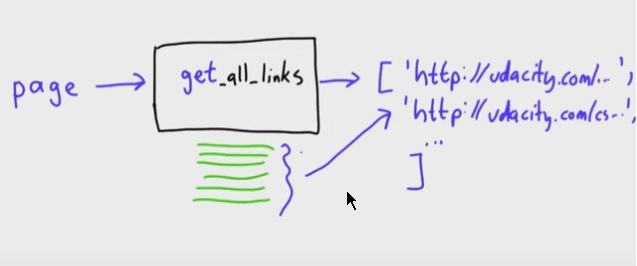 page → get_all_links → ['http://udacity.com/...',
'http://udacity.com/cs..',
...
]